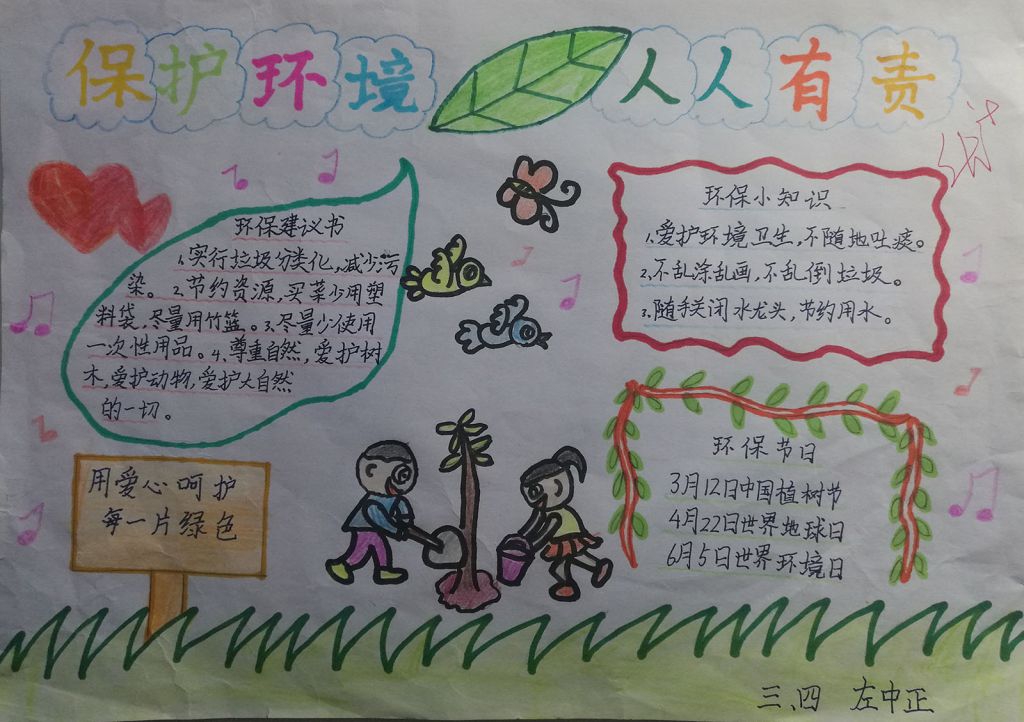 保护环境 人人有责
环保建议书
1.实行垃圾分类化,减少污
染。2.节约资源,买菜少用塑
料袋,尽量用竹篮。3.尽量少使用
一次性用品。4.尊重自然,爱护树
木,爱护动物,爱护大自然
的一切。
环保小知识
1.爱护环境卫生,不随地吐痰。
2.不乱涂乱画,不乱倒垃圾。
3.随手关闭水龙头,节约用水。
环保节日
3月12日中国植树节
4月22日世界地球日
6月5日世界环境日
用爱心呵护
每一片绿色
三、四 左中正